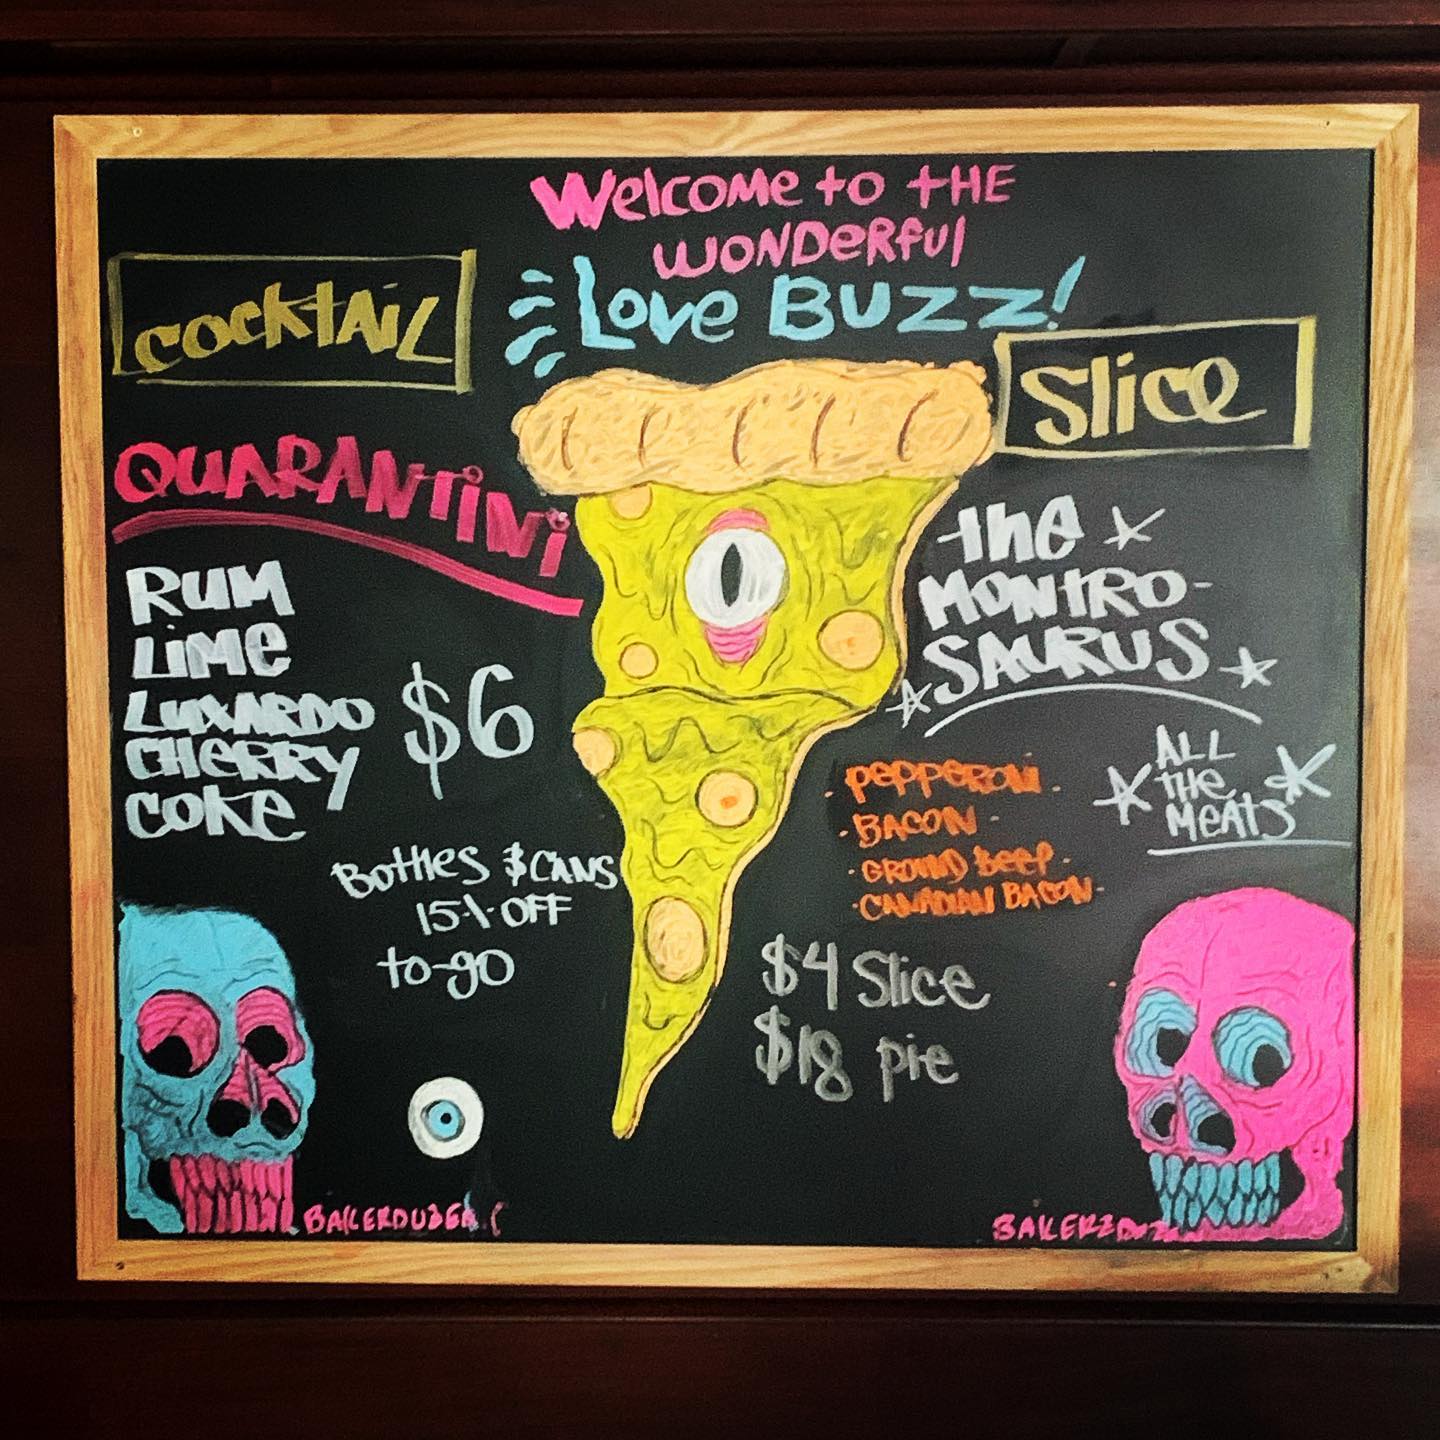 Welcome to tHE
WONDeRful
Love BUZZ!
COCKTAIL
QUARANTINI
RUM
LiMe
LUXARDO
CHeRRY
COKe
$6
Bottles & CANS
15% OFF
to-go
Slice
the
MONTRO-
SAURUS
ALL
THe
MeAtS
PEPPERONI
·BACON·
·GROUND BEEF·
·CANADIAN BACON·
$4 Slice
$18 pie